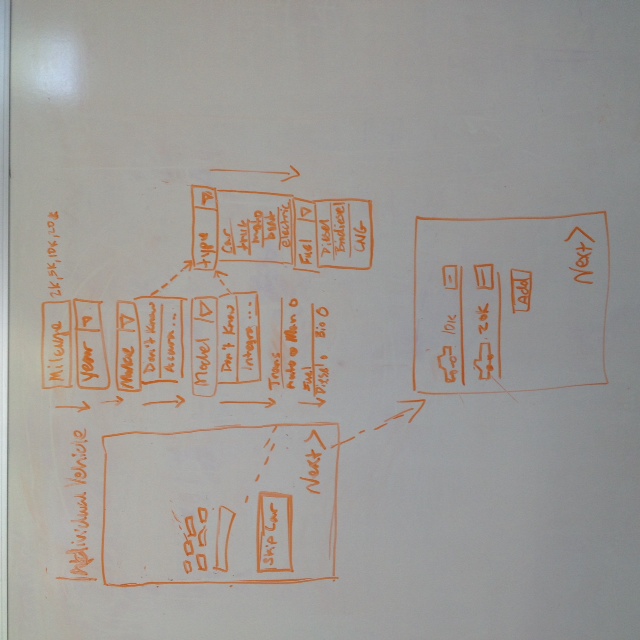 Individual Vehicle
Skip Car
Next >
Mileage
2K, 5K, 10K, 20K
Year
Make
Don't Know
Acura ...
Model
Don't Know
Integra ...
Trans
Auto o Man o
Fuel
Diesel o Bio o
type
Car
truck
moto
boat
electric
Fuel
Diesel
Biodiesel
CNG
10K
20K
Add
Next >